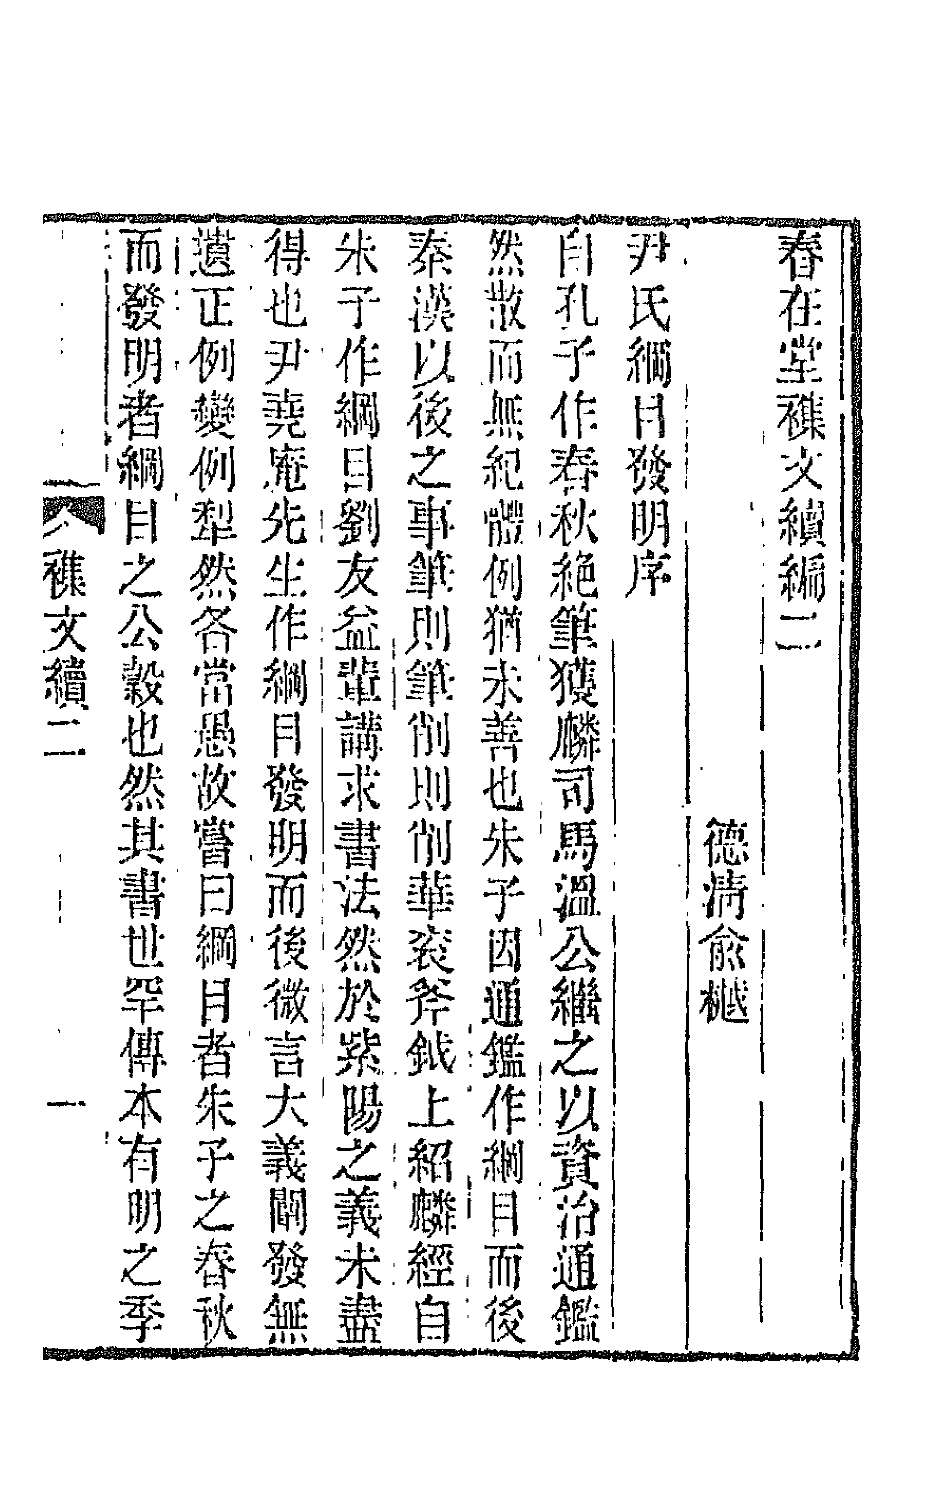 春在堂襍文續編二
德淸俞樾
尹氏綱目發明序
自孔子作春秋絕筆獲麟司馬溫公繼之以資治通鑑
然散而無紀體例猶未善也朱子因通鑑作綱目而後
秦漢以後之事筆則筆削則削華衮斧鉞上紹麟經自
朱子作綱目劉友益輩講求書法然於紫陽之義未盡
得也尹堯庵先生作綱目發明而後微言大義闡發無
遺正例變例犁然各當愚故嘗曰綱目者朱子之春秋
而發明者綱目之公穀也然其書世罕傳本有明之季
襍文續二
一